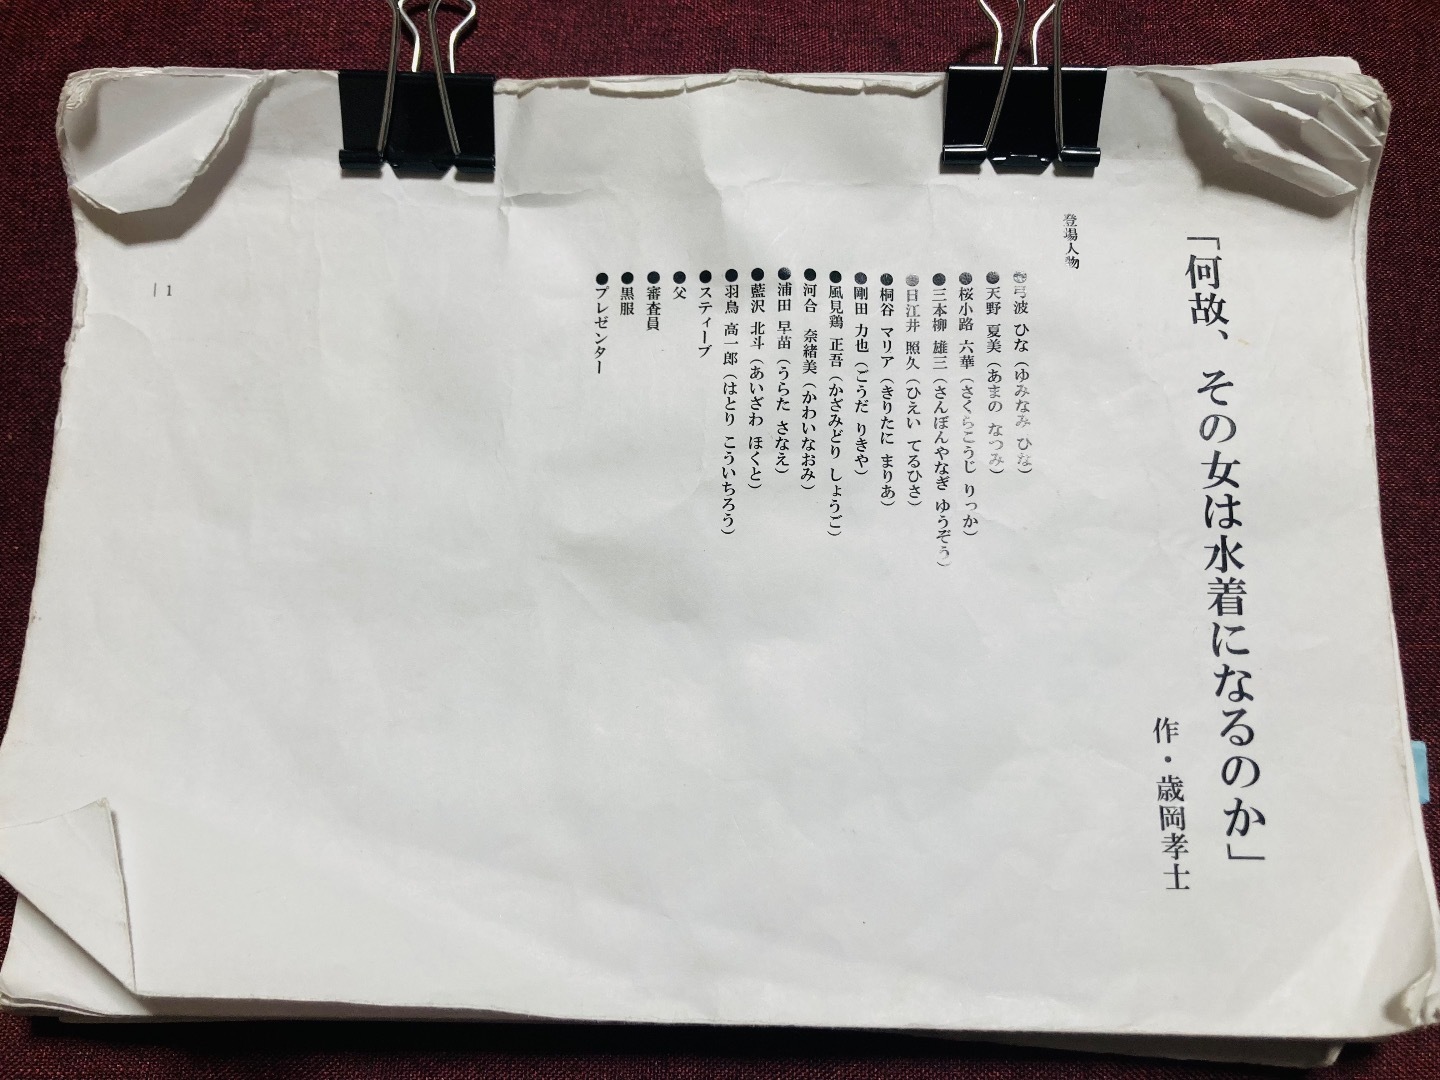 「何故、その女は水着になるのか」
作・歳岡孝士
登場人物
●弓波 ひな（ゆみなみ ひな）
●天野 夏美（あまの なつみ）
●桜小路 六華（さくらこうじ りっか）
●三本柳 雄三（さんぼんやなぎ ゆうぞう）
●日江井 照久（ひえい てるひさ）
●桐谷 マリア（きりたに まりあ）
●剛田 力也（ごうだ りきや）
●風見鶏 正吾（かざみどり しょうご）
●河合 奈緒美（かわいなおみ）
●浦田 早苗（うらた さなえ）
●藍沢 北斗（あいざわ ほくと）
●羽鳥 高一郎（はとり こういちろう）
●スティーブ
●父
●審査員
●黒服
●プレゼンター
| 1